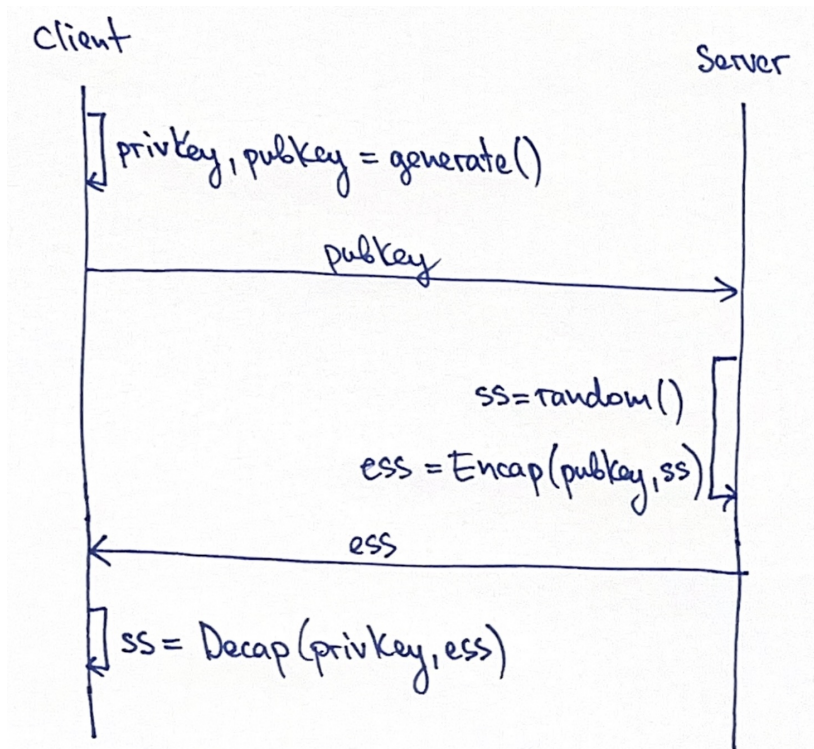 Client
Server
privkey, pubkey = generate()
pubkey
ss=random()
ess = Encap(pubkey, ss)
ess
ss = Decap(privkey, ess)